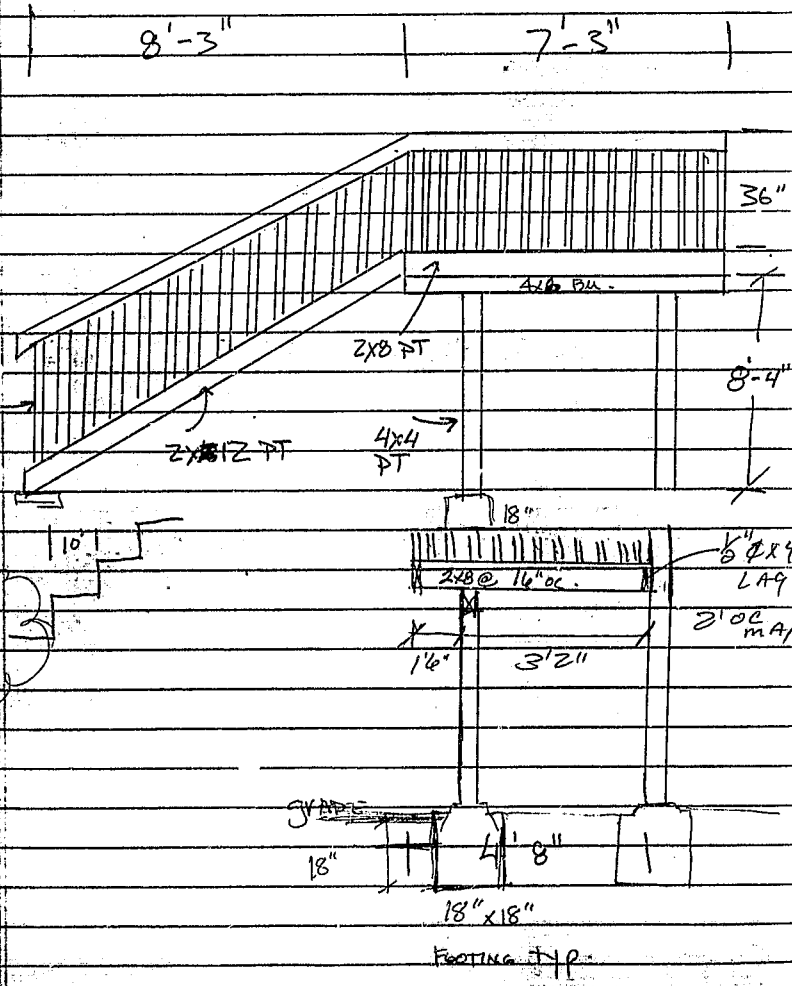 8'-3" 7'-3"
36"
2X8 PT
8'-4"
2X12 PT
4X4
PT
18"
10"
2X8 @ 16" OC.
LAG
2' OC
1'6" 3'2"
GRADE
18"
4' 8"
18" X 18"
FOOTING TYP.